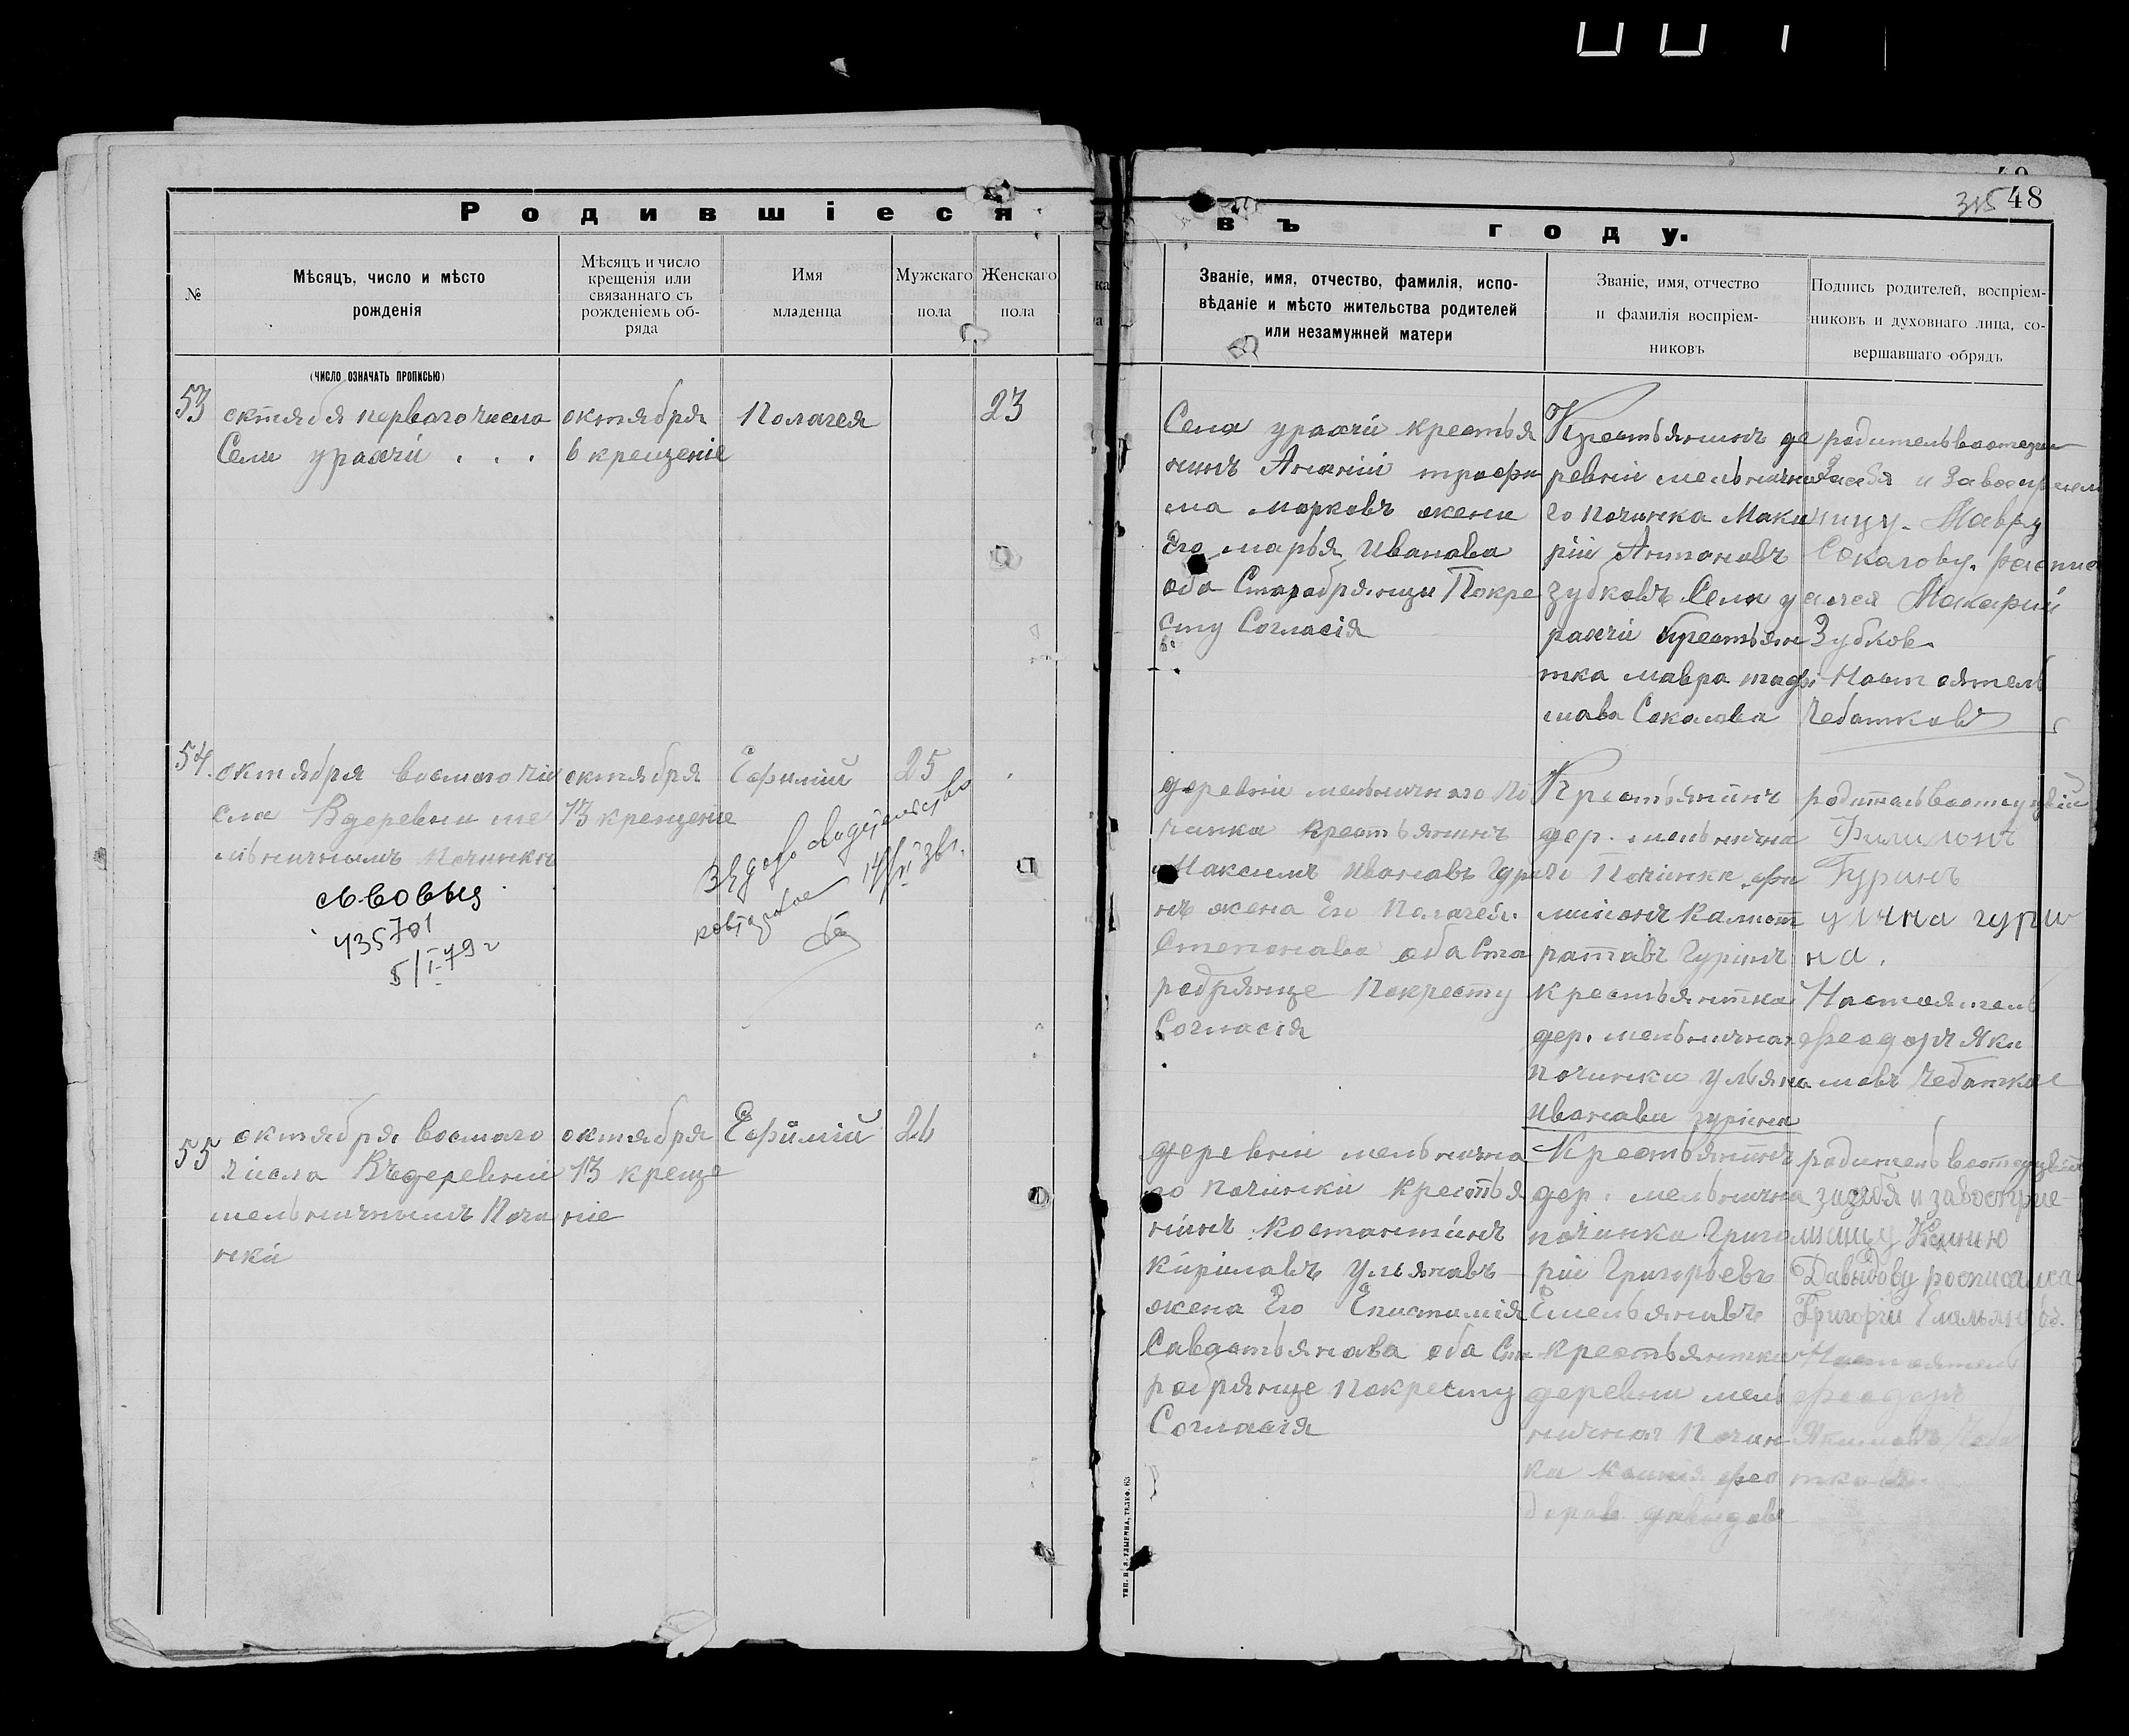 Родившіеся
въ году.
48
№
Мѣсяцъ, число и мѣсто
рожденія
Мѣсяцъ и число
крещенія или
связаннаго съ
рожденіемъ об-
ряда
Имя
младенца
Мужскаго
пола
Женскаго
пола
Званіе, имя, отчество, фамилія, испо-
вѣданіе и мѣсто жительства родителей
или незамужней матери
Званіе, имя, отчество
и фамилія воспріем-
никовъ
Подпись родителей, воспріем-
никовъ и духовнаго лица, со-
вершавшаго обрядъ
(число означать прописью)
53
октябя перваго числа
Сели урахчи . . .
октября
6 крещеніе
Полагея
23
Села урахчи крестья
нинъ Ананій трофи
ма марковъ жени
Его марья Иванова
оба Старобрянци Покре
сту Согласія
Крестьянинъ де
ревніи мельнична
го починка Мака
рій Антоновъ
Зубковъ Села у
рахчи Крестьян
тка мавра
мова Соколова
ницу. Мавру
Соколову.
Макарий
Зубков
Настоятель
Чебатковъ
54.
октября восмаго чи
сла Вдеревни ме
льничнымъ Починки
октября
13 крещеніе
Ефимій
25
435701
5/I-79г
деревни мельничнаго По
чинка крестьянинъ
Максимъ Ивановъ Гури
нъ жена Его Палагея
Степонава оба Ста
робрянце Покресту
Согласія
Крестьянинъ
дер. мельнична
го Починка фи
лимонъ
ратавъ Гуринъ
крестьянтка
дер. мельнична
починки Ульяна
Иванави гурина
Филимонъ
Гуринъ
гури
на.
Настоятель
феодоръ Яки
мовъ Чебатков
55
октября восмаго
числа Въдеревніи
мельничнымъ Почи
нки
октября
13 креще
ніе
Ефимій
26
деревніи мельнична
го починки крестья
нинъ Костантинъ
Кириловъ Ульяновъ
жена Его Епистимія
Савостьянова оба Ста
робрянце Покресту
Согласія
Крестьянинъ
дер. мельнична
починка Григо
рій Григорьевъ
Емельяновъ
крестьянтка
деревни мел
ничнаг Почин
ка Ксинія фео
дорав давыдова
засебя и завосприе
мницу Ксинию
Давыдову росписался
Григорій Емельяновъ.
Настоятель
феодоръ
Якимовъ Чеба
тковъ